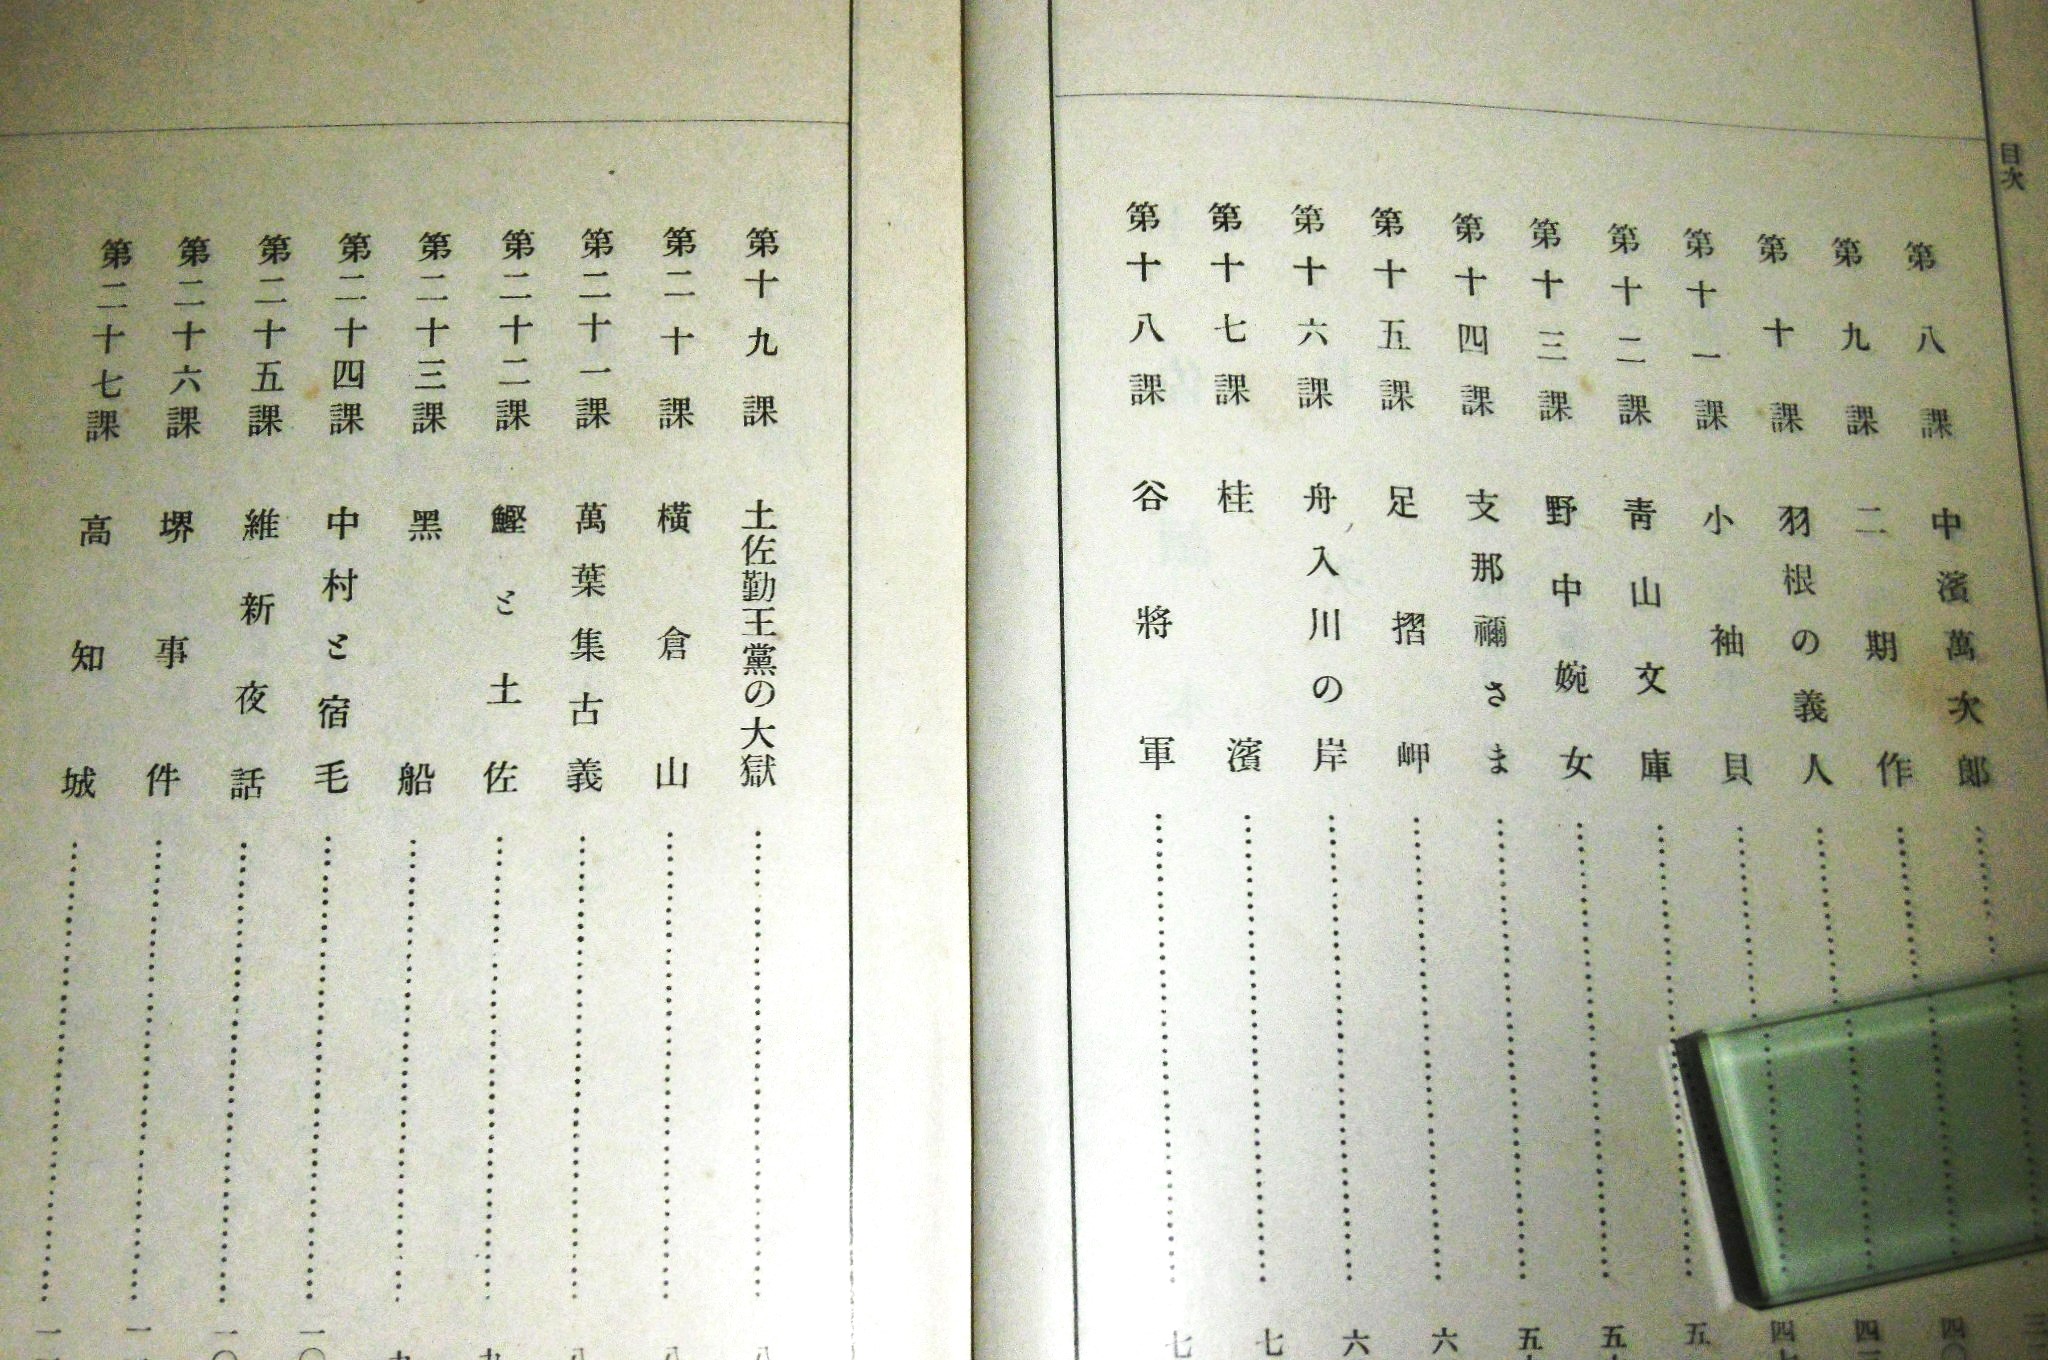 目次
第八課 中濱萬次郎
第九課 二期作 四〇
第十課 羽根の義人 四二
第十一課 小袖貝 四七
第十二課 靑山文庫 五
第十三課 野中婉女 五
第十四課 支那禰さま 五
第十五課 足摺岬 六
第十六課 舟入川の岸 六
第十七課 桂濱 七
第十八課 谷將軍 七
第十九課 土佐勤王黨の大獄 八
第二十課 橫倉山 八
第二十一課 萬葉集古義 八
第二十二課 鰹と土佐 九
第二十三課 黑船 九
第二十四課 中村と宿毛 一〇
第二十五課 維新夜話 一〇
第二十六課 堺事件 一
第二十七課 高知城 一